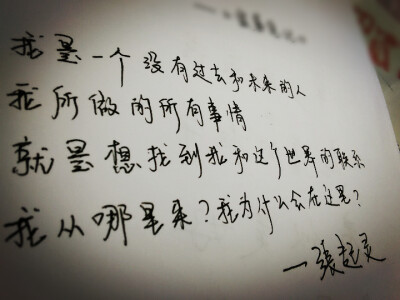 我是一个没有过去和未来的人
我所做的所有事情
就是想找到我和这个世界的联系
我从哪里来？我为什么会在这里？
—張起灵